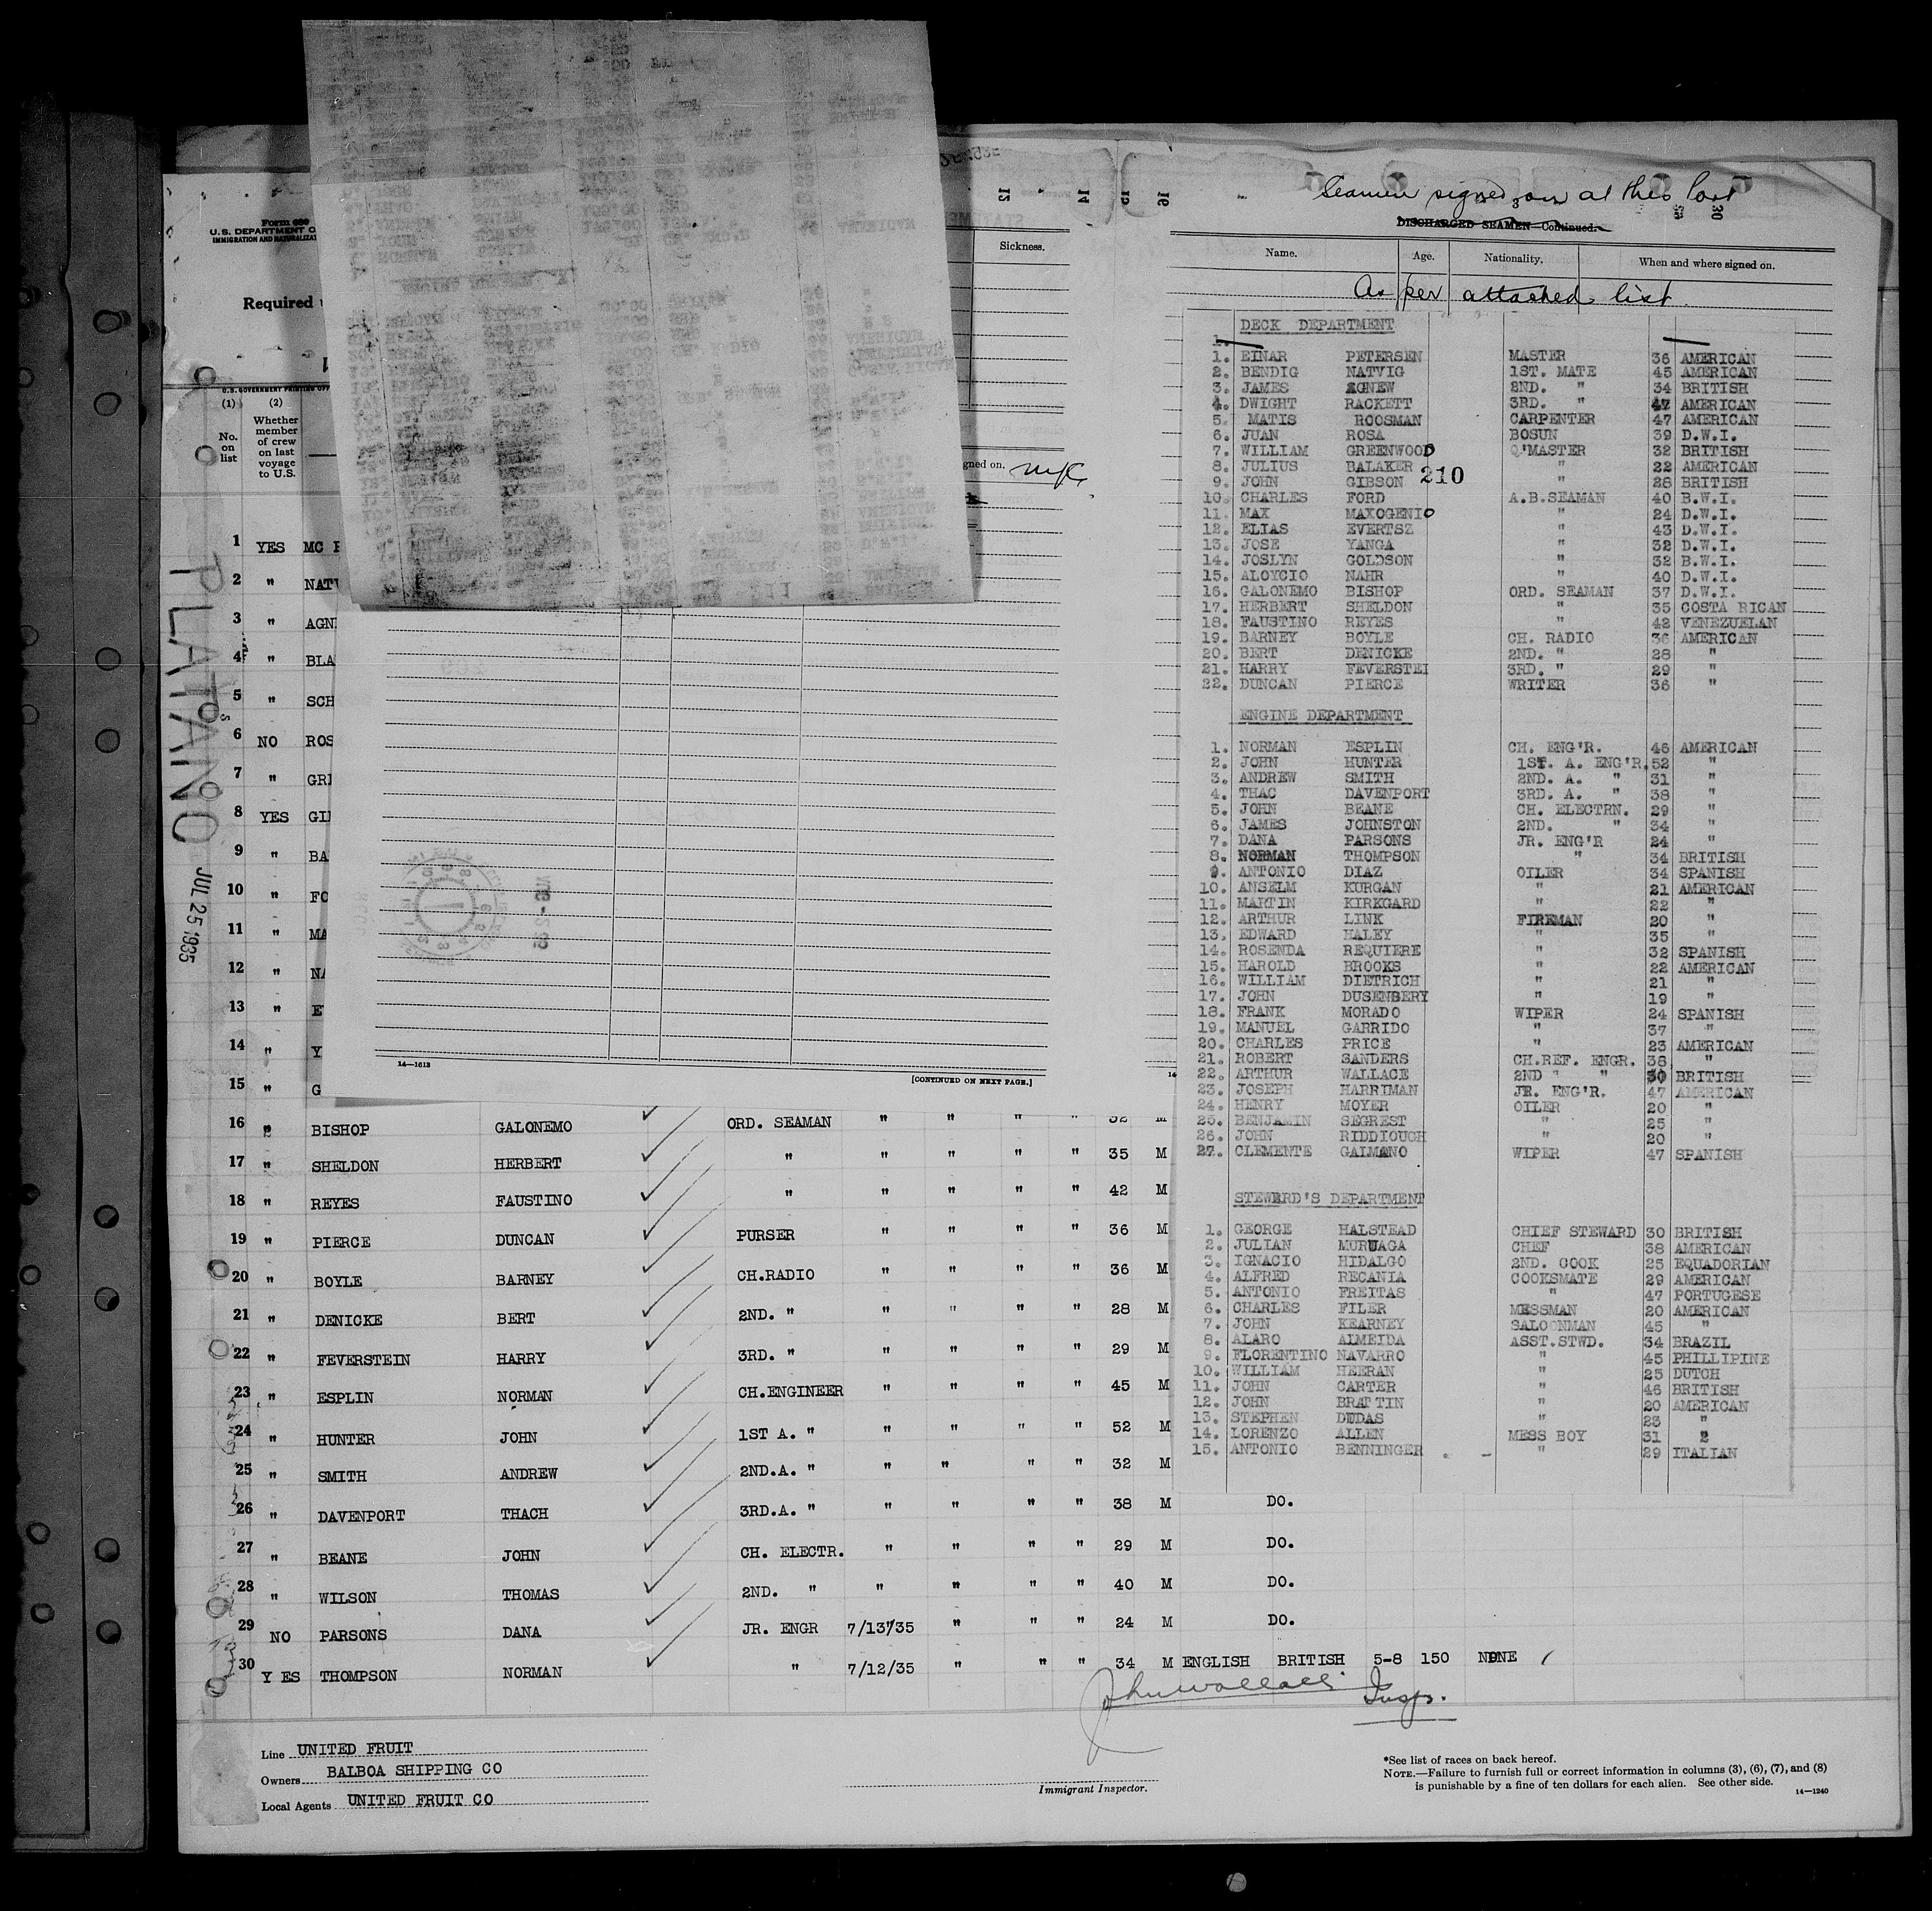 Form 680
U.S. DEPARTMENT O
IMMIGRATION AND NATURALIZAT
Required
U.S. GOVERNMENT PRINTING OFF
(1) (2)
No. on list
Whether member of crew on last voyage to U.S.
PLATANO
JUL 25 1935
1 YES MC
2 " NAT
3 " AGN
4 " BLA
5 " SCH
6 NO ROS
7 " GRI
8 YES GI
9 " BA
10 " FO
11 " MA
12 " NA
13 " E
14 " Y
15 " G
16 " BISHOP GALONEMO ORD. SEAMAN " " " " 32 M
17 " SHELDON HERBERT " " " " " 35 M
18 " REYES FAUSTINO " " " " " 42 M
19 " PIERCE DUNCAN PURSER " " " " 36 M
20 " BOYLE BARNEY CH.RADIO " " " " 36 M
21 " DENICKE BERT 2ND. " " " " " 28 M
22 " FEVERSTEIN HARRY 3RD. " " " " " 29 M
23 " ESPLIN NORMAN CH.ENGINEER " " " " 45 M
24 " HUNTER JOHN 1ST A. " " " " " 52 M
25 " SMITH ANDREW 2ND.A. " " " " " 32 M
26 " DAVENPORT THACH 3RD.A. " " " " " 38 M DO.
27 " BEANE JOHN CH. ELECTR. " " " " 29 M DO.
28 " WILSON THOMAS 2ND. " " " " " 40 M DO.
29 NO PARSONS DANA JR. ENGR 7/13/35 " " " 24 M DO.
30 Y ES THOMPSON NORMAN " 7/12/35 " " " 34 M ENGLISH BRITISH 5-8 150 NONE
John Wallace Insp.
Line UNITED FRUIT
Owners BALBOA SHIPPING CO
Local Agents UNITED FRUIT CO
Immigrant Inspector.
*See list of races on back hereof.
NOTE.—Failure to furnish full or correct information in columns (3), (6), (7), and (8)
is punishable by a fine of ten dollars for each alien. See other side.
14—1240
Sickness.
gned on.
14—1613
[CONTINUED ON NEXT PAGE.]
Seamen signed on at this Port
DISCHARGED SEAMEN—Continued.
Name. Age. Nationality. When and where signed on.
As per attached list
210
DECK DEPARTMENT
1.
1. EINAR PETERSEN MASTER 36 AMERICAN
2. BENDIG NATVIG 1ST. MATE 45 AMERICAN
3. JAMES AGNEW 2ND. " 34 BRITISH
4. DWIGHT RACKETT 3RD. " 47 AMERICAN
5. MATIS ROOSMAN CARPENTER 47 AMERICAN
6. JUAN ROSA BOSUN 39 D.W.I.
7. WILLIAM GREENWOOD Q'MASTER 32 BRITISH
8. JULIUS BALAKER " 22 AMERICAN
9. JOHN GIBSON " 28 BRITISH
10. CHARLES FORD A.B.SEAMAN 40 B.W.I.
11. MAX MAXOGENIO " 24 D.W.I.
12. ELIAS EVERTSZ " 43 D.W.I.
13. JOSE YANGA " 32 D.W.I.
14. JOSLYN GOLDSON " 32 B.W.I.
15. ALOYCIO NAHR " 40 D.W.I.
16. GALONEMO BISHOP ORD. SEAMAN 37 D.W.I.
17. HERBERT SHELDON " 35 COSTA RICAN
18. FAUSTINO REYES " 42 VENEZUELAN
19. BARNEY BOYLE CH. RADIO 36 AMERICAN
20. BERT DENICKE 2ND. " 28 "
21. HARRY FEVERSTEI 3RD. " 29 "
22. DUNCAN PIERCE WRITER 36 "
ENGINE DEPARTMENT
1. NORMAN ESPLIN CH. ENG'R. 46 AMERICAN
2. JOHN HUNTER 1ST. A. ENG'R. 52 "
3. ANDREW SMITH 2ND. A. " 31 "
4. THAC DAVENPORT 3RD. A. " 38 "
5. JOHN BEANE CH. ELECTRN. 29 "
6. JAMES JOHNSTON 2ND. " 34 "
7. DANA PARSONS JR. ENG'R 24 "
8. NORMAN THOMPSON " 34 BRITISH
9. ANTONIO DIAZ OILER 34 SPANISH
10. ANSELM KURGAN " 21 AMERICAN
11. MARTIN KIRKGARD " 22 "
12. ARTHUR LINK FIREMAN 20 "
13. EDWARD HALEY " 35 "
14. ROSENDA REQUIERE " 32 SPANISH
15. HAROLD BROOKS " 22 AMERICAN
16. WILLIAM DIETRICH " 21 "
17. JOHN DUSENBERY " 19 "
18. FRANK MORADO WIPER 24 SPANISH
19. MANUEL GARRIDO " 37 "
20. CHARLES PRICE " 23 AMERICAN
21. ROBERT SANDERS CH.REF. ENGR. 38 "
22. ARTHUR WALLACE 2ND " " 30 BRITISH
23. JOSEPH HARRIMAN JR. ENG'R. 47 AMERICAN
24. HENRY MOYER OILER 20 "
25. BENJAMIN SEGREST " 25 "
26. JOHN RIDDIOUGH " 20 "
27. CLEMENTE GAIMANO WIPER 47 SPANISH
STEWARD'S DEPARTMENT
1. GEORGE HALSTEAD CHIEF STEWARD 30 BRITISH
2. JULIAN MURUAGA CHEF 38 AMERICAN
3. IGNACIO HIDALGO 2ND. COOK 25 EQUADORIAN
4. ALFRED RECANIA COOKSMATE 29 AMERICAN
5. ANTONIO FREITAS " 47 PORTUGESE
6. CHARLES FILER MESSMAN 20 AMERICAN
7. JOHN KEARNEY SALOONMAN 45 "
8. ALARO ALMEIDA ASST.STWD. 34 BRAZIL
9. FLORENTINO NAVARRO " 45 PHILLIPINE
10. WILLIAM HEERAN " 25 DUTCH
11. JOHN CARTER " 46 BRITISH
12. JOHN BRATTIN " 20 AMERICAN
13. STEPHEN DUDAS " 23 "
14. LORENZO ALLEN MESS BOY 31 2
15. ANTONIO BENNINGER " 29 ITALIAN